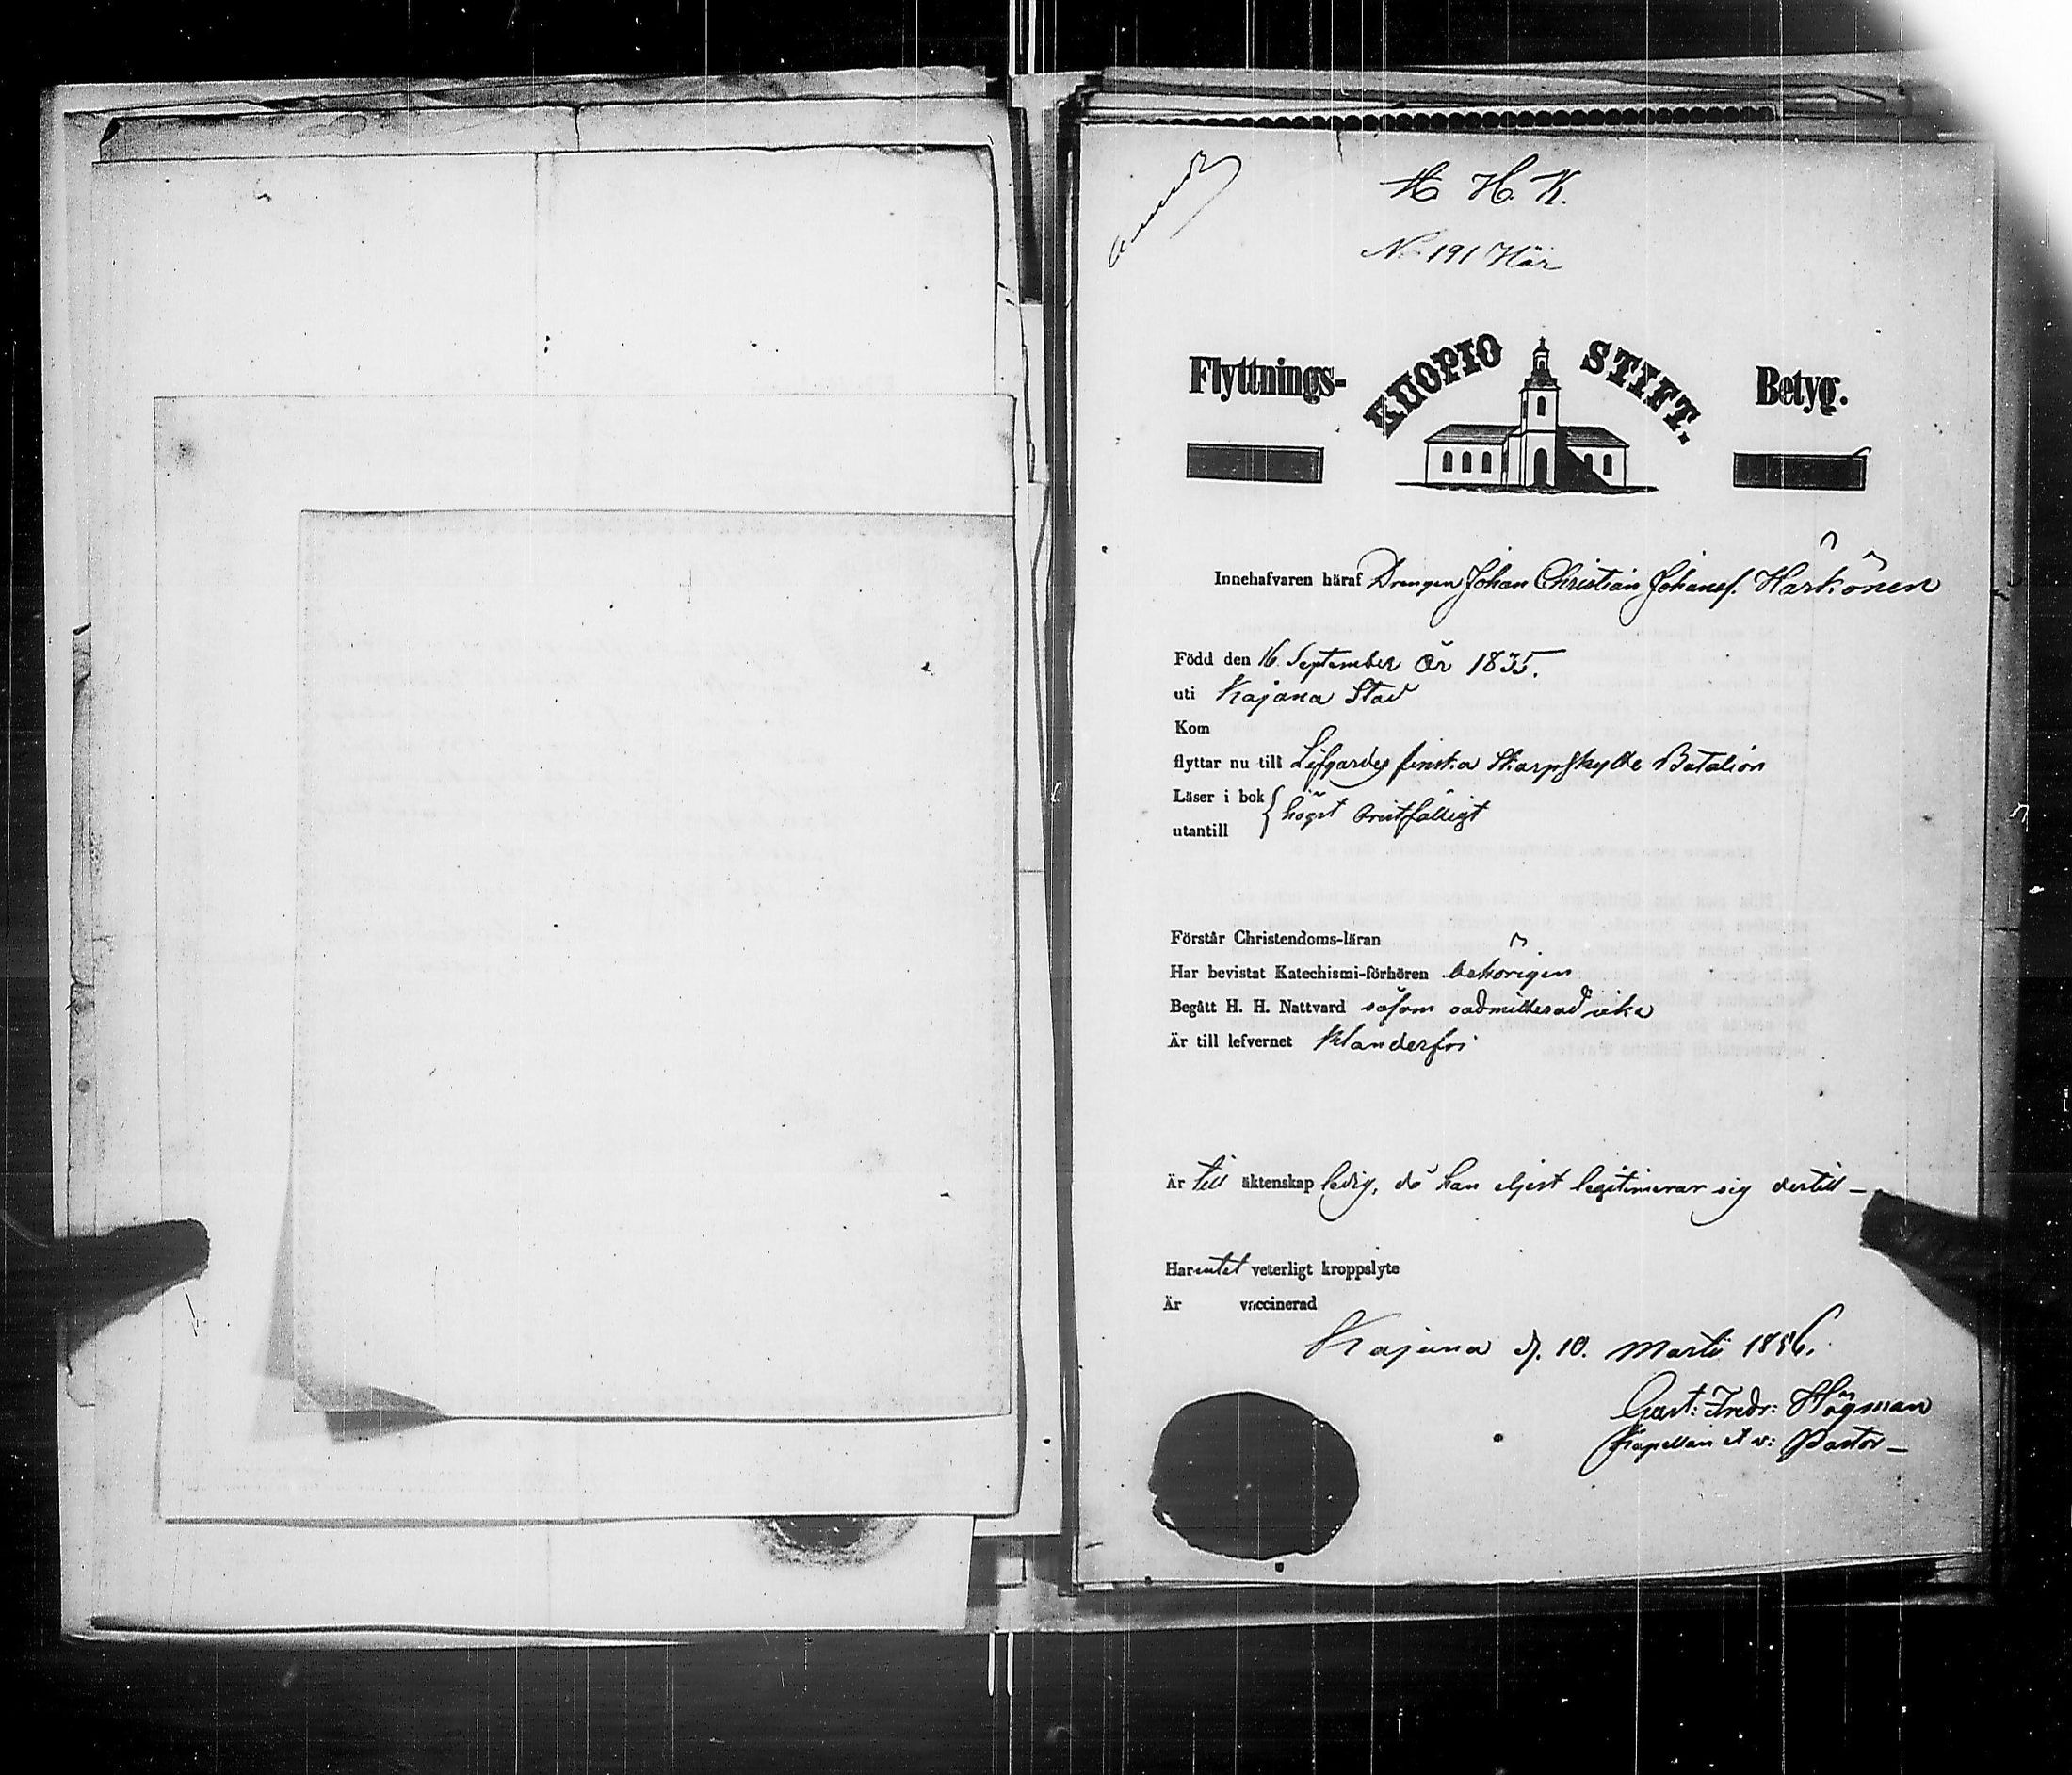 H. H. K.
N 191 Här
Flyttnings- KUOPIO STIFT. Betyg.
Innehafvaren häraf Drengen Johan Christian Johansf. Härkönen
Född den 16 September år 1835.
uti Kajana Stad
Kom
flyttar nu till Lifgardes finska Skarpskytte Batalion
Läser i bok
utantill { högst bristfälligt
Förstår Christendoms-läran
Har bevistat Katechismi-förhören behörigen
Begått H. H. Nattvard såsom oadmitterad icke
Är till lefvernet Klanderfri
Är till äktenskap ledig, då han eljest legitimerar sig dertill –
Har intet veterligt kroppslyte
Är vaccinerad
Kajana d. 10. Martii 1856.
Gust: Fredr: Högman
Kapellan et v: Pastor –